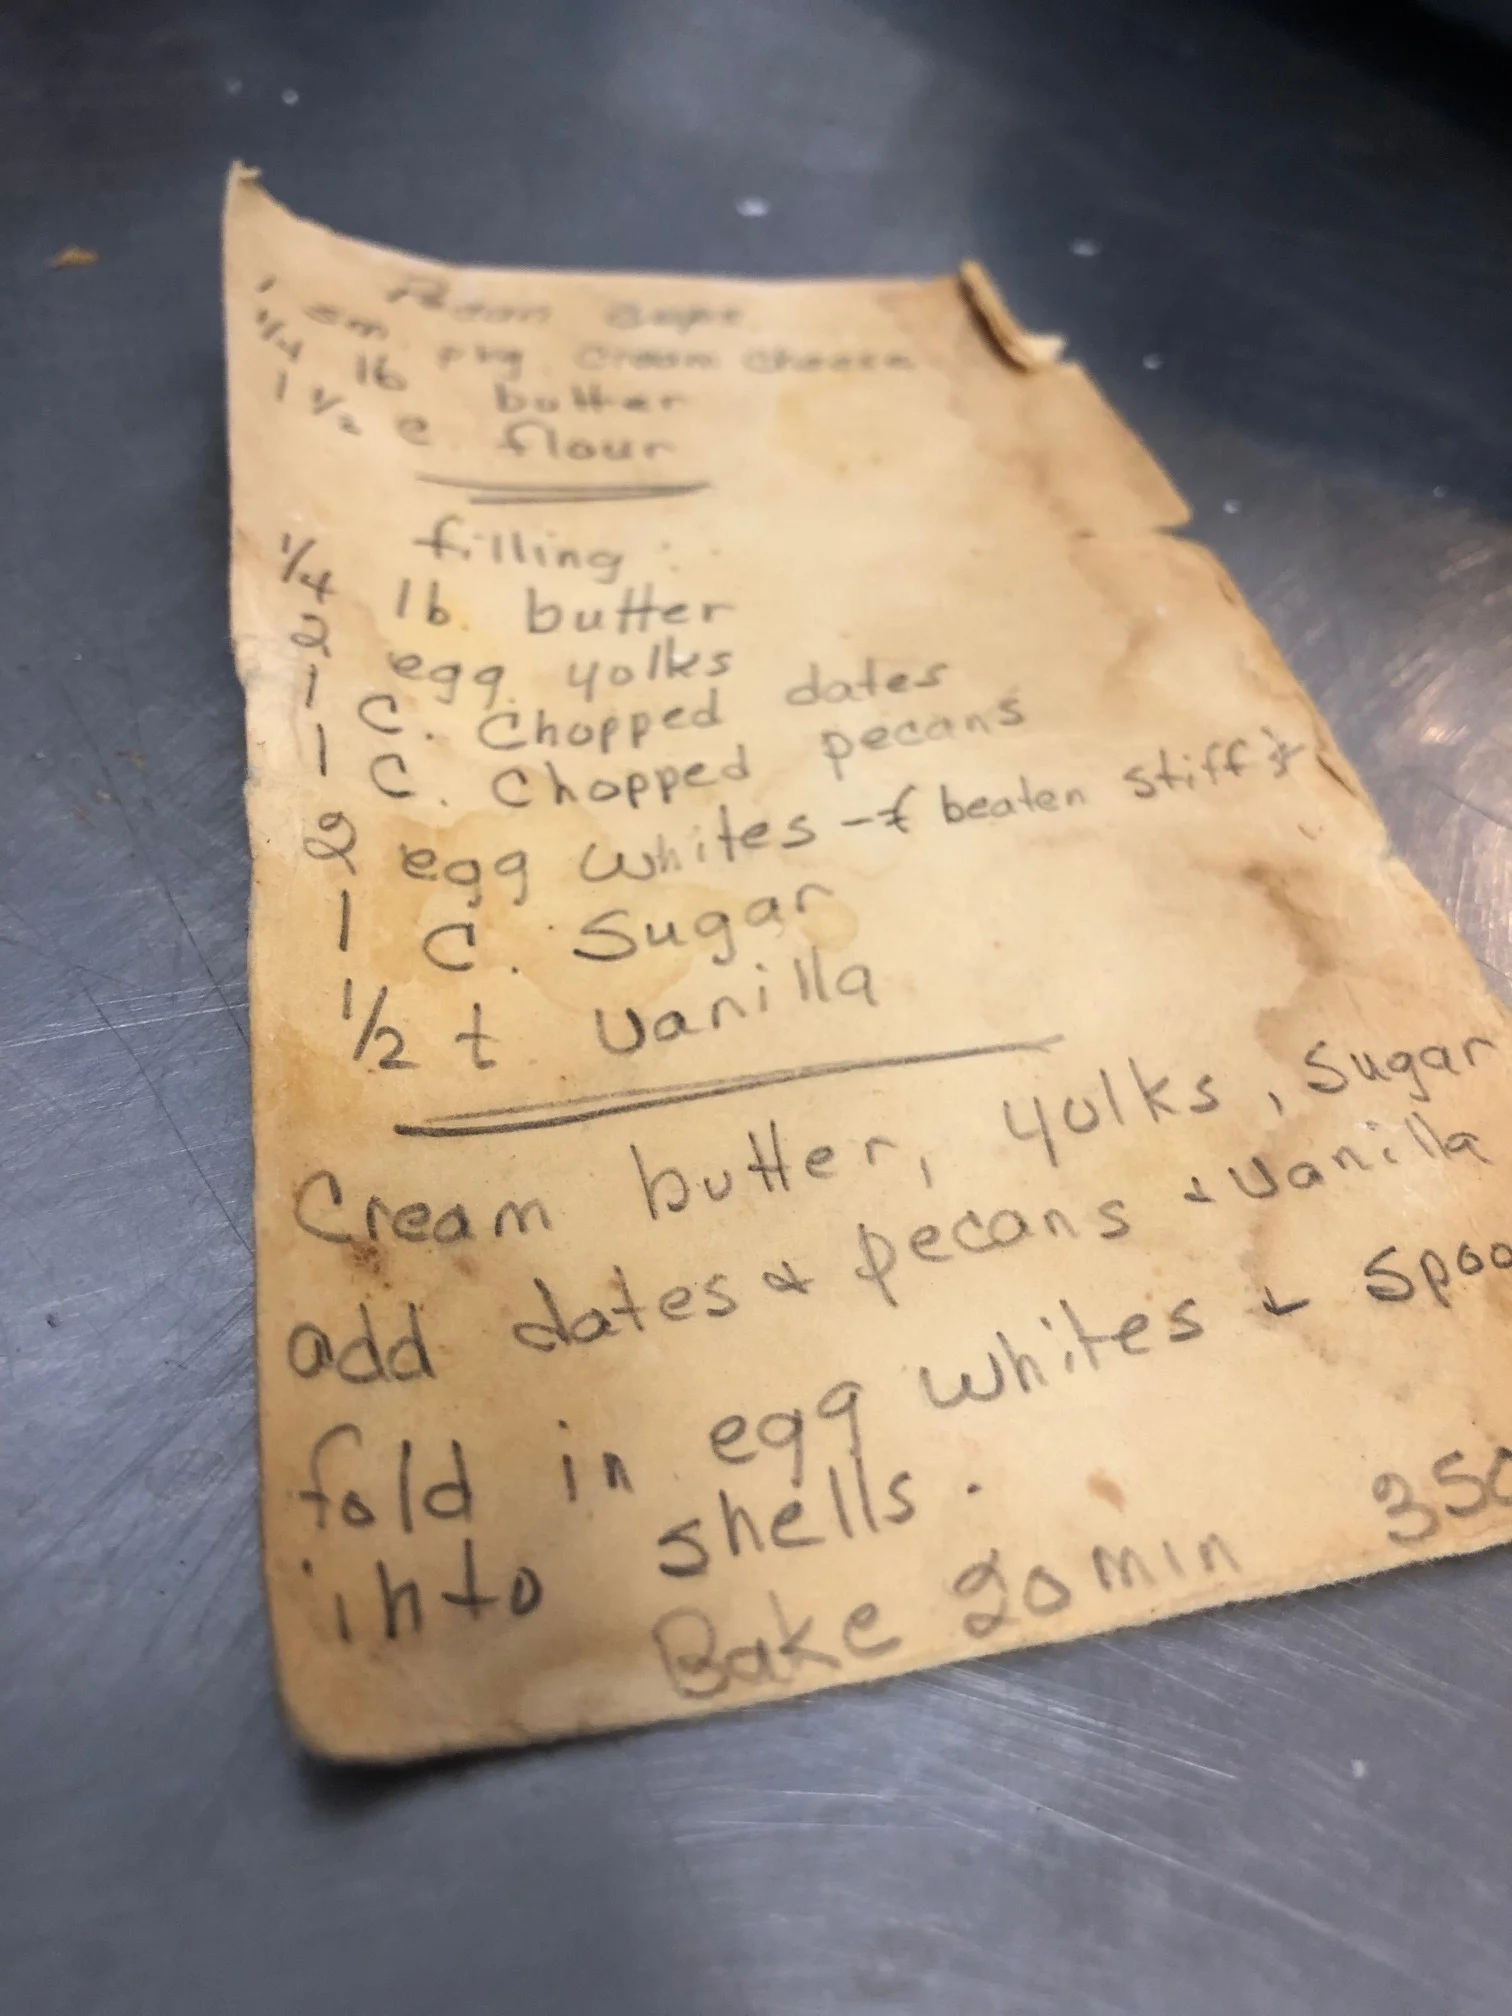 Pecan Cups
1 sm pkg cream cheese
1/4 lb butter
1 1/2 c flour
filling:
1/4 lb. butter
2 egg yolks
1 C. Chopped dates
1 C. Chopped pecans
2 egg whites - { beaten stiff }
1 C. Sugar
1/2 t vanilla
Cream butter, yolks, Sugar
add dates & pecans & vanilla
fold in egg whites & spoo
into shells.
Bake 20 min 350